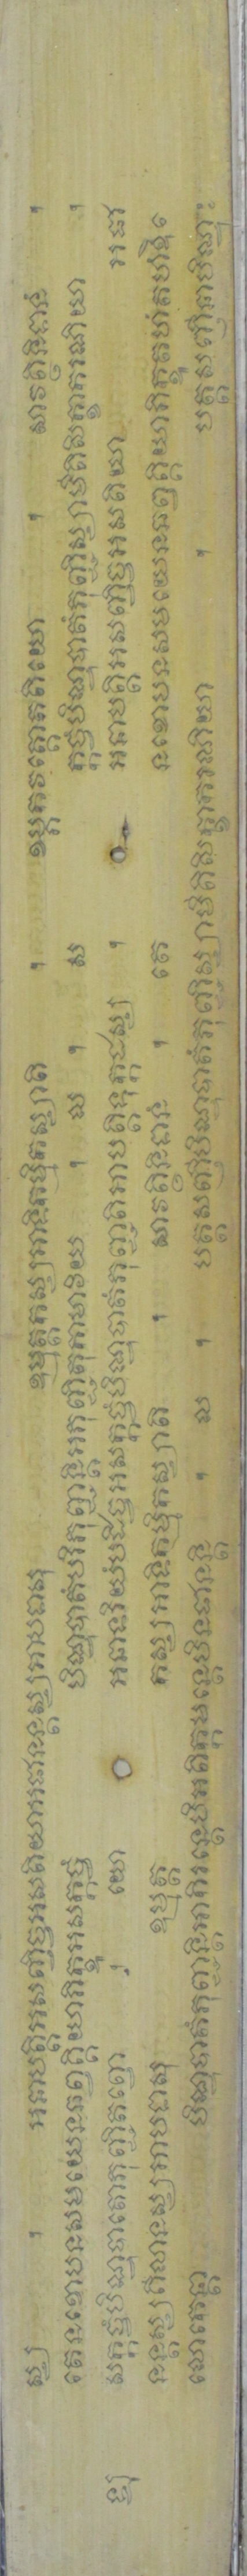 ស្ស ។ អនាបត្តិអសញ្ចិច្ចអសតិយាអជានន្តស្សអាបទាសុ ឧម្មត្តកស្សអាទិកម្មិកស្សាតិ ។ ខម្ភករត្តោតតិយោ ។ សាវត្ថិនិទានំ ។
តេនខោបនសមយេនឆព្វគ្គិយាភិក្ខូអសក្កច្ចំ បិណ្ឌបាតំបរិភុញ្ជន្តិអភុញ្ជិតុកាមាវិយ ។ ល ។ ស ក្កច្ចំបិណ្ឌបាតំភុញ្ជិស្សាមីតិសិក្ខាករណីយា ។
ទ្ឋុ សក្កច្ចំបិណ្ឌបាតោភុញ្ជិតព្ពោ ។ យោ អនាទរិយំបដិច្ចអសក្កច្ចំបិណ្ឌបាតំភុញ្ជតិអាបត្តិទុក្កដស្ស ។ អនាបត្តិអសញ្ចិច្ចអសតិយា អជា
នន្តស្សគិលានស្សអាបទាសុ ឧម្មត្ត កស្សអាទិកម្មិកស្សាតិ ។ សាវត្ថិនិទានំ ។ តេ នខោបនសមយេនឆព្វគ្គិយាភិក្ខូតហំតហំឱ
លោកេន្តា បិណ្ឌបាតំភុញ្ជន្តិអាកិរន្តេបិអតិក្កមន្តេបិនជានន្តិ ។ ល ។ បត្តសញ្ញីបិណ្ឌបាតំភុញ្ជិស្សាមីតិសិក្ខាករណីយា ។ បត្តសញ្ញិនាបិណ្ឌ